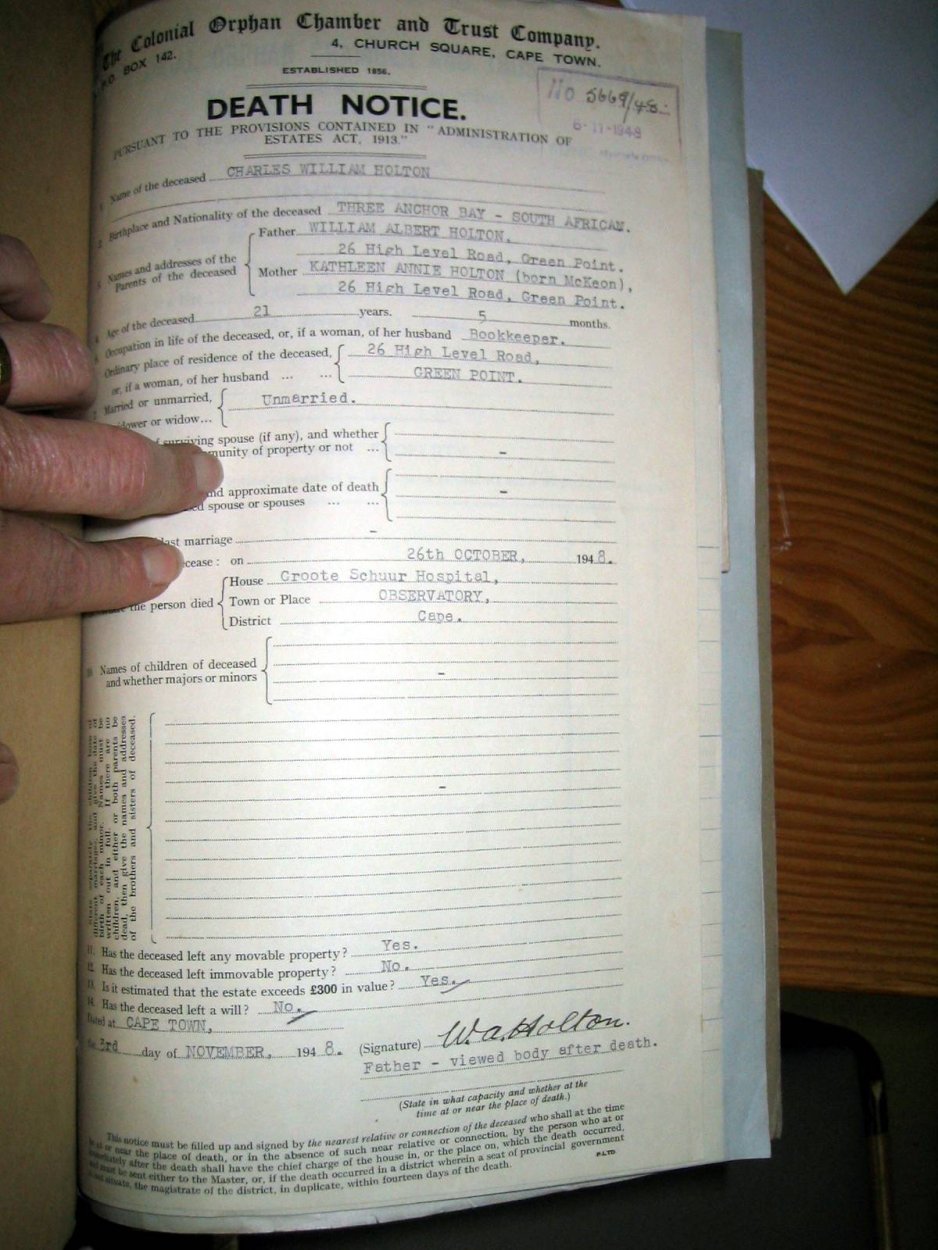 The Colonial Orphan Chamber and Trust Company.
P.O. BOX 142.
4, CHURCH SQUARE, CAPE TOWN.
ESTABLISHED 1856.
No 5669/48
6-11-1948
DEATH NOTICE.
PURSUANT TO THE PROVISIONS CONTAINED IN "ADMINISTRATION OF
ESTATES ACT, 1913."
1 Name of the deceased CHARLES WILLIAM HOLTON
2. Birthplace and Nationality of the deceased THREE ANCHOR BAY - SOUTH AFRICAN.
3 Names and addresses of the Parents of the deceased
Father WILLIAM ALBERT HOLTON,
26 High Level Road, Green Point.
Mother KATHLEEN ANNIE HOLTON (born McKeon),
26 High Level Road, Green Point.
4 Age of the deceased 21 years. 5 months.
Occupation in life of the deceased, or, if a woman, of her husband Bookkeeper.
Ordinary place of residence of the deceased, 26 High Level Road,
or, if a woman, of her husband ... ... GREEN POINT.
Married or unmarried, Unmarried.
widower or widow...
surviving spouse (if any), and whether
community of property or not ... -
and approximate date of death
spouse or spouses ... ... -
last marriage -
decease: on 26th OCTOBER, 1948.
the person died
House Groote Schuur Hospital,
Town or Place OBSERVATORY,
District Cape.
10 Names of children of deceased
and whether majors or minors -
State separately the children born of
different marriages and give the date of
birth of each minor. Names must be
written out in full. If there are no
children, and either or both parents be
dead, then give the names and addresses
of the brothers and sisters of deceased.
-
11. Has the deceased left any movable property? Yes.
12. Has the deceased left immovable property? No.
13. Is it estimated that the estate exceeds £300 in value? Yes.
14. Has the deceased left a will? No.
Dated at CAPE TOWN,
the 3rd day of NOVEMBER, 1948.
(Signature) W.A. Holton.
Father - viewed body after death.
(State in what capacity and whether at the
time at or near the place of death.)
This notice must be filled up and signed by the nearest relative or connection of the deceased who shall at the time
be at or near the place of death, or in the absence of such near relative or connection, by the person who at or
immediately after the death shall have the chief charge of the house in, or the place on, which the death occurred,
and must be sent either to the Master, or, if the death occurred in a district wherein a seat of provincial government
is not situate, the magistrate of the district, in duplicate, within fourteen days of the death.
P.LTD.